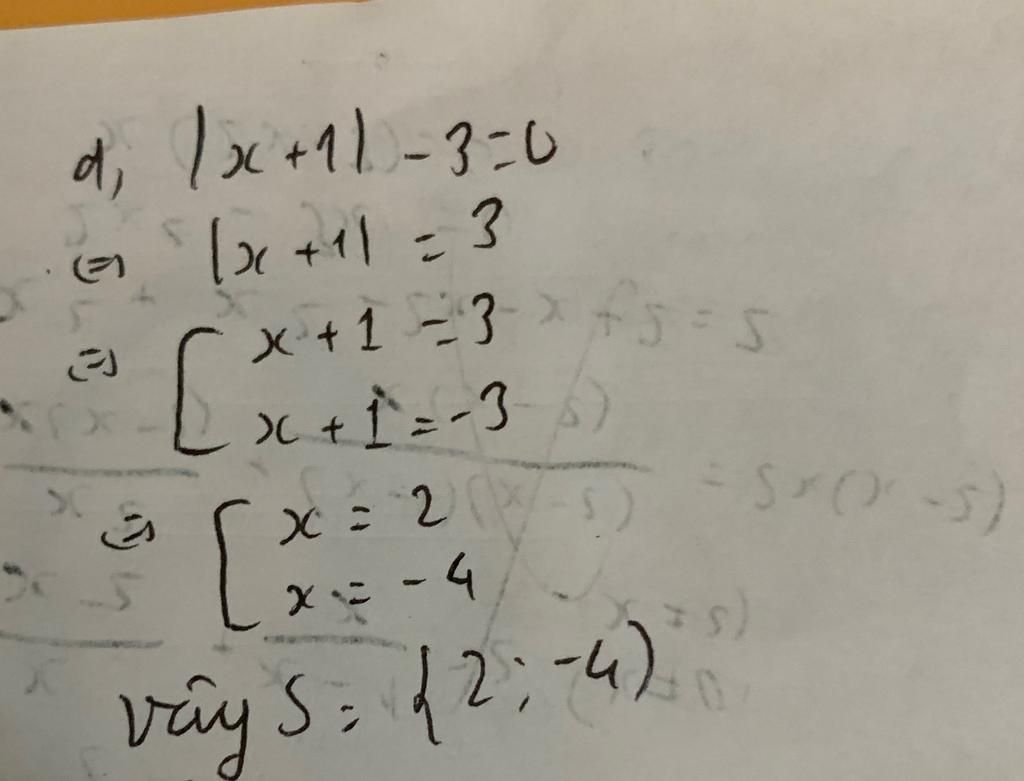 d, |x+1| - 3 = 0
⇔ |x+1| = 3
⇔ [ x+1 = 3
x+1 = -3
⇔ [ x = 2
x = -4
vậy S = {2; -4}